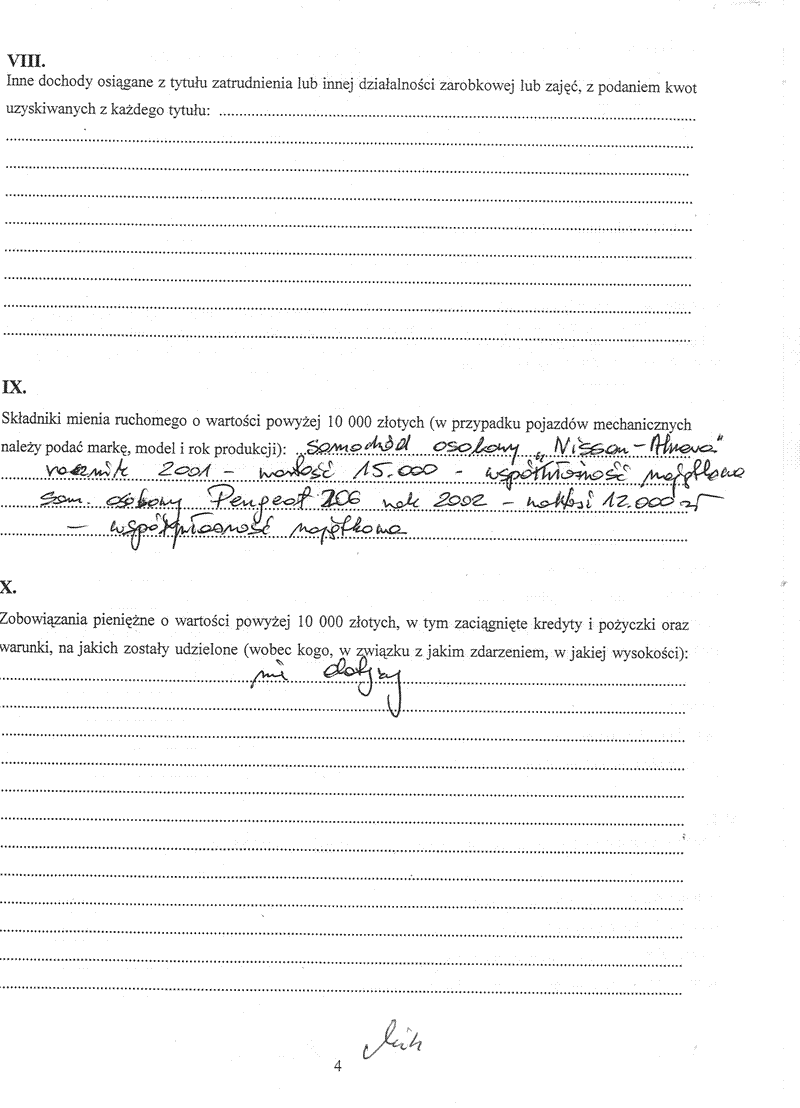 VIII.
Inne dochody osiągane z tytułu zatrudnienia lub innej działalności zarobkowej lub zajęć, z podaniem kwot
uzyskiwanych z każdego tytułu:
IX.
Składniki mienia ruchomego o wartości powyżej 10 000 złotych (w przypadku pojazdów mechanicznych
należy podać markę, model i rok produkcji): samochód osobowy „Nissan-Almera"
rocznik 2001 - wartość 15.000 - współwłasność majątkowa
sam. osobowy Peugeot 206 rok 2002 - wartość 12.000 zł
- współwłasność majątkowa
X.
Zobowiązania pieniężne o wartości powyżej 10 000 złotych, w tym zaciągnięte kredyty i pożyczki oraz
warunki, na jakich zostały udzielone (wobec kogo, w związku z jakim zdarzeniem, w jakiej wysokości):
nie dotyczy
4